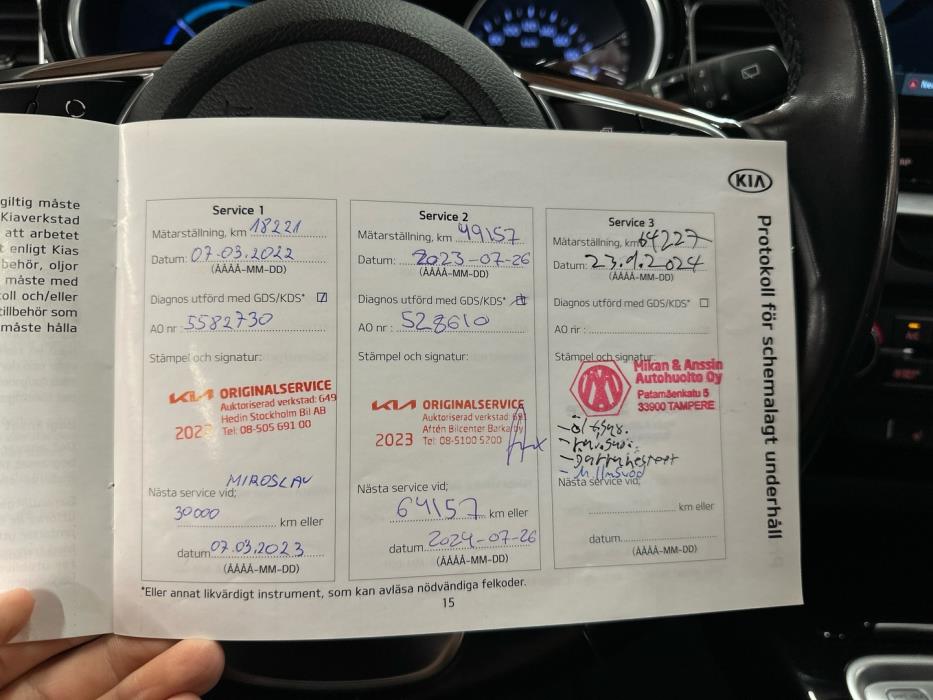 giltig måste
Kiaverkstad
att arbetet
enligt Kias
behör, oljor
måste med
oll och/eller
tillbehör som
måste hålla
KIA
Protokoll för schemalagt underhåll
Service 1
Mätarställning, km 18221
Datum: 07.03.2022
(ÅÅÅÅ-MM-DD)
Diagnos utförd med GDS/KDS*
AO nr : 5582730
Stämpel och signatur:
KIA ORIGINALSERVICE
Auktoriserad verkstad: 649
Hedin Stockholm Bil AB
2023 Tel: 08-505 691 00
MIROSLAV
Nästa service vid;
30000 km eller
datum 07.03.2023
(ÅÅÅÅ-MM-DD)
Service 2
Mätarställning, km 49157
Datum: 2023-07-26
(ÅÅÅÅ-MM-DD)
Diagnos utförd med GDS/KDS*
AO nr : 528610
Stämpel och signatur:
KIA ORIGINALSERVICE
Auktoriserad verkstad 691
Aftén Bilcenter Barkarby
2023 Tel: 08-5100 5200
Nästa service vid;
64157 km eller
datum 2024-07-26
(ÅÅÅÅ-MM-DD)
Service 3
Mätarställning, km 64227
Datum: 23.9.2024
(ÅÅÅÅ-MM-DD)
Diagnos utförd med GDS/KDS*
AO nr :
Stämpel och signatur:
Mikan & Anssin
Autohuolto Oy
Patamäenkatu 5
33900 TAMPERE
Nästa service vid;
km eller
datum
(ÅÅÅÅ-MM-DD)
*Eller annat likvärdigt instrument, som kan avläsa nödvändiga felkoder.
15